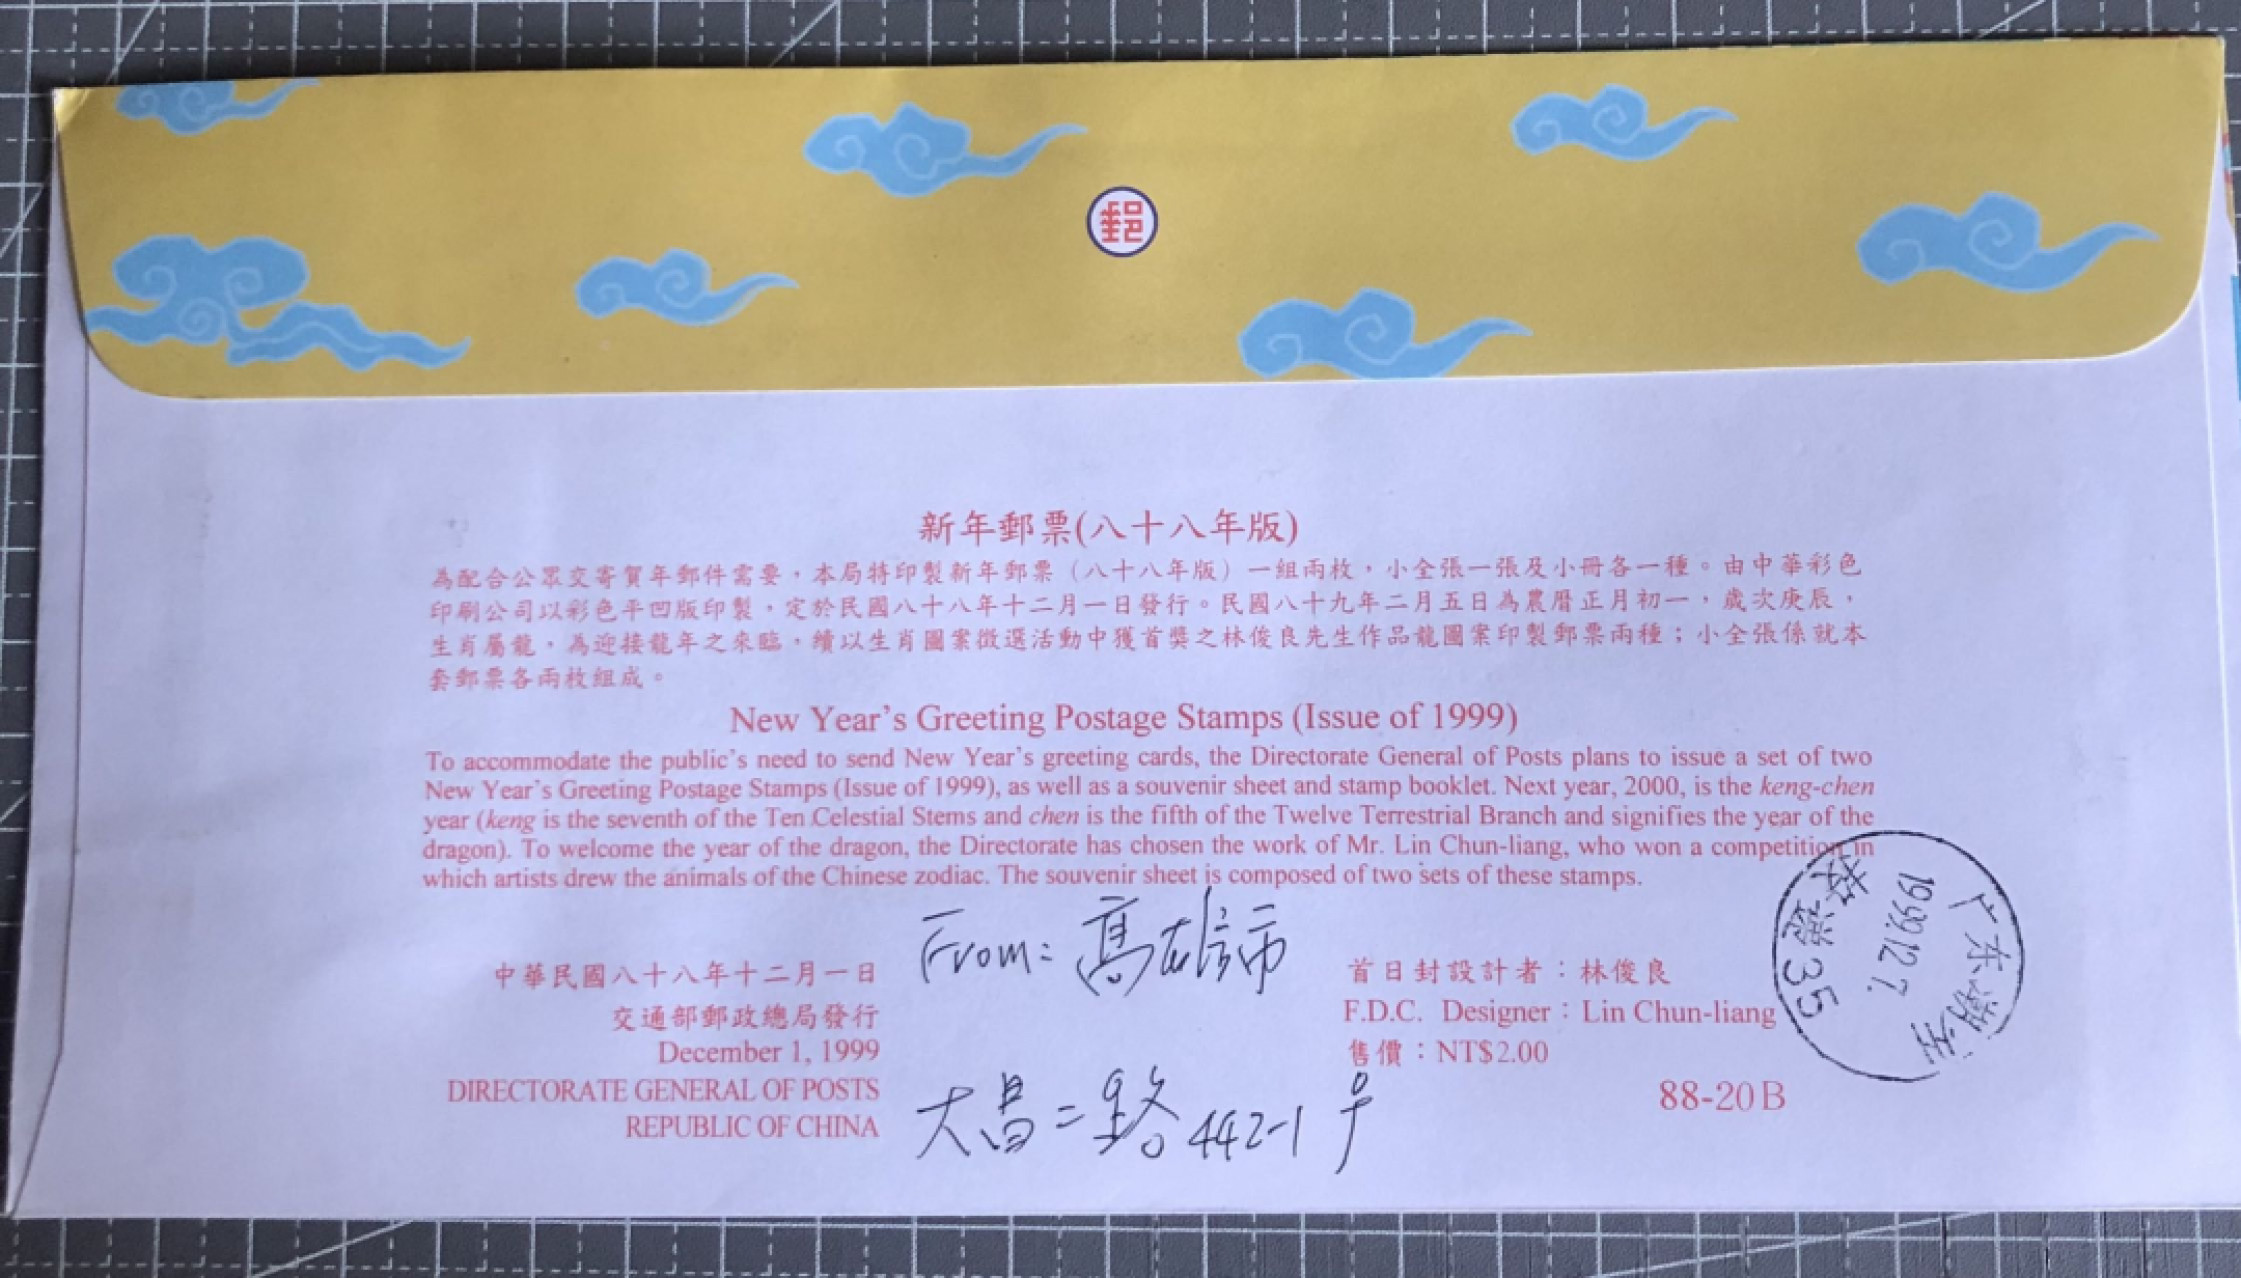 郵
新年郵票(八十八年版)
為配合公眾交寄賀年郵件需要，本局特印製新年郵票（八十八年版）一組兩枚，小全張一張及小冊各一種。由中華彩色
印刷公司以彩色平凹版印製，定於民國八十八年十二月一日發行。民國八十九年二月五日為農曆正月初一，歲次庚辰，
生肖屬龍，為迎接龍年之來臨，續以生肖圖案徵選活動中獲首獎之林俊良先生作品龍圖案印製郵票兩種；小全張係就本
套郵票各兩枚組成。
New Year's Greeting Postage Stamps (Issue of 1999)
To accommodate the public's need to send New Year's greeting cards, the Directorate General of Posts plans to issue a set of two
New Year's Greeting Postage Stamps (Issue of 1999), as well as a souvenir sheet and stamp booklet. Next year, 2000, is the keng-chen
year (keng is the seventh of the Ten Celestial Stems and chen is the fifth of the Twelve Terrestrial Branch and signifies the year of the
dragon). To welcome the year of the dragon, the Directorate has chosen the work of Mr. Lin Chun-liang, who won a competition in
which artists drew the animals of the Chinese zodiac. The souvenir sheet is composed of two sets of these stamps.
From: 高雄市
大昌二路 442-1 号
中華民國八十八年十二月一日
交通部郵政總局發行
December 1, 1999
DIRECTORATE GENERAL OF POSTS
REPUBLIC OF CHINA
首日封設計者：林俊良
F.D.C. Designer：Lin Chun-liang
售價：NT$2.00
88-20B
广东潮安
1999.12.7.
投递35